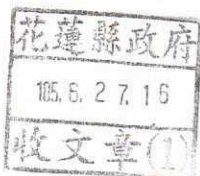 花蓮縣政府
105.6.27.16
收文章(1)